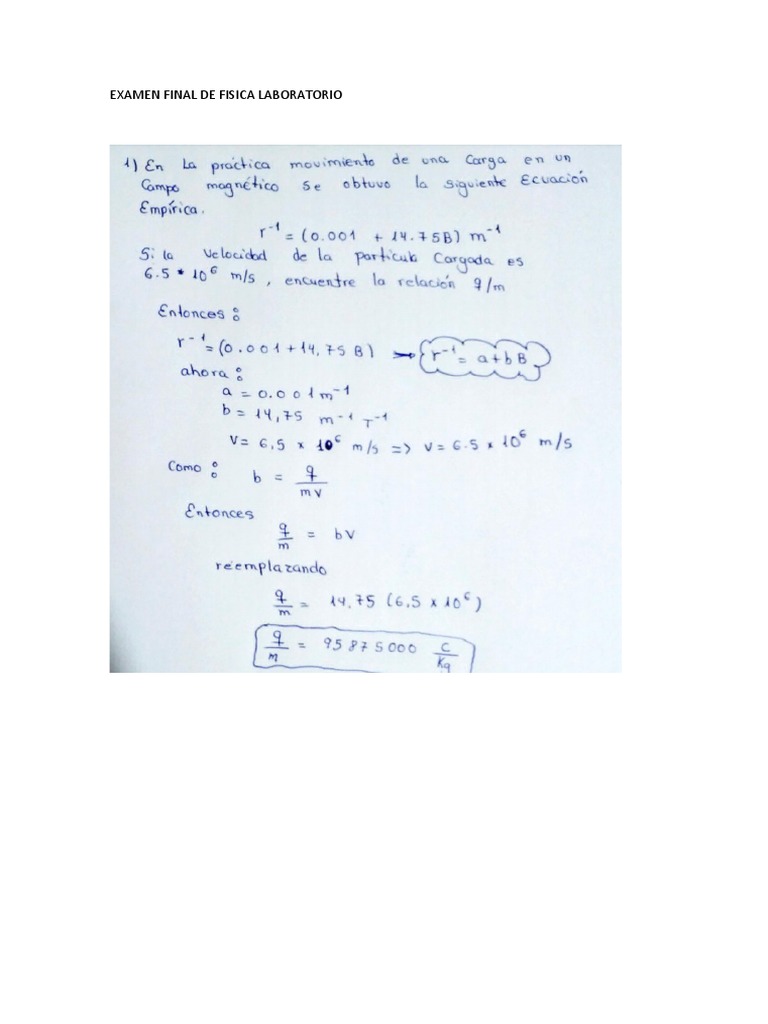 EXAMEN FINAL DE FISICA LABORATORIO
1) En La práctica movimiento de una Carga en un
Campo magnético se obtuvo la siguiente Ecuación
Empírica.
r⁻¹ = (0.001 + 14.75B) m⁻¹
Si la Velocidad de la partícula Cargada es
6.5 * 10⁶ m/s, encuentre la relación q/m
Entonces :
r⁻¹ = (0.001 + 14,75 B) → r⁻¹ = a + b B
ahora :
a = 0.001 m⁻¹
b = 14,75 m⁻¹ T⁻¹
V = 6,5 × 10⁶ m/s => V = 6.5 × 10⁶ m/s
Como : b = q/mv
Entonces
q/m = bV
reemplazando
q/m = 14,75 (6,5 × 10⁶)
q/m = 95875000 C/Kg